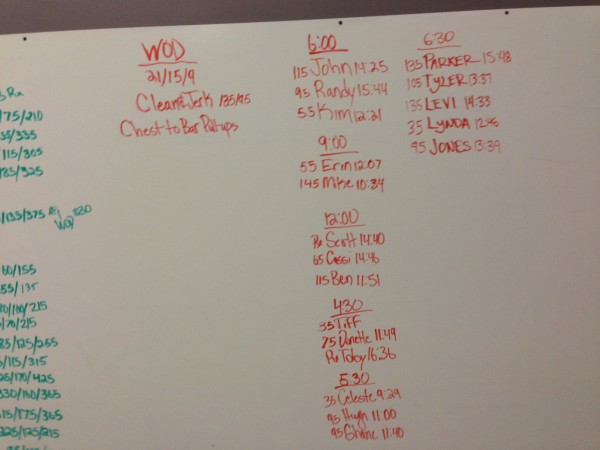 WOD
21/15/9
Clean & Jerk 135/95
Chest to Bar Pull-ups
6:00
115 John 14:25
95 Randy 15:44
55 Kim 12:21
9:00
55 Erin 12:07
145 Mike 10:34
12:00
Rx Scott 14:40
65 Cassi 14:46
115 Ben 11:51
4:30
35 Tiff
75 Danette 11:49
Rx Toby 16:36
5:30
35 Celeste 9:29
95 Hugn 11:00
95 Shane 11:40
6:30
135 PARKER 15:48
105 TYLER 13:37
135 LEVI 14:33
35 LYNDA 12:46
95 JONES 13:39
Rx
175/210
35/335
115/305
185/325
/135/375
WOD
60/155
55/135
10/100/215
/70/215
85/125/255
/115/315
25/170/425
330/160/365
15/175/365
225/125/215